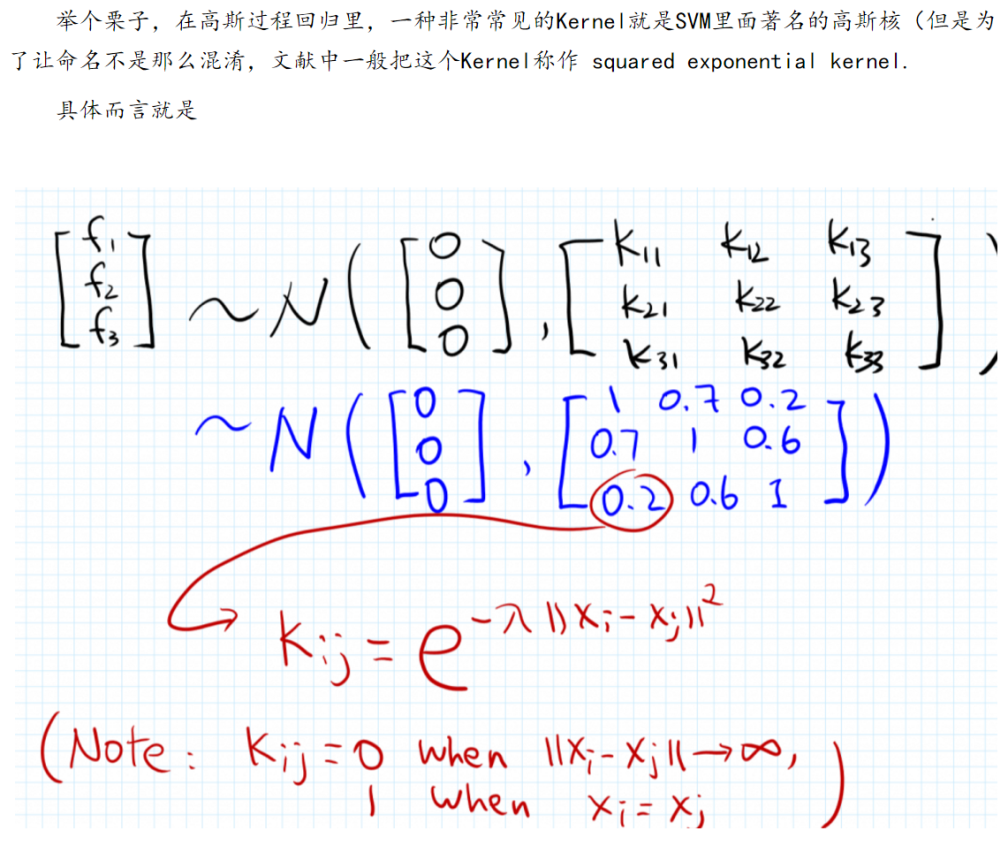 举个栗子，在高斯过程回归里，一种非常常见的Kernel就是SVM里面著名的高斯核（但是为
了让命名不是那么混淆，文献中一般把这个Kernel称作 squared exponential kernel.
具体而言就是
[f₁ f₂ f₃] ~ N([0 0 0], [K₁₁ K₁₂ K₁₃
K₂₁ K₂₂ K₂₃
K₃₁ K₃₂ K₃₃])
~ N([0 0 0], [1 0.7 0.2
0.7 1 0.6
0.2 0.6 1])
Kij = e^(-λ||xi-xj||²)
(Note: Kij=0 when ||xi-xj||→∞,
1 when xi=xj)